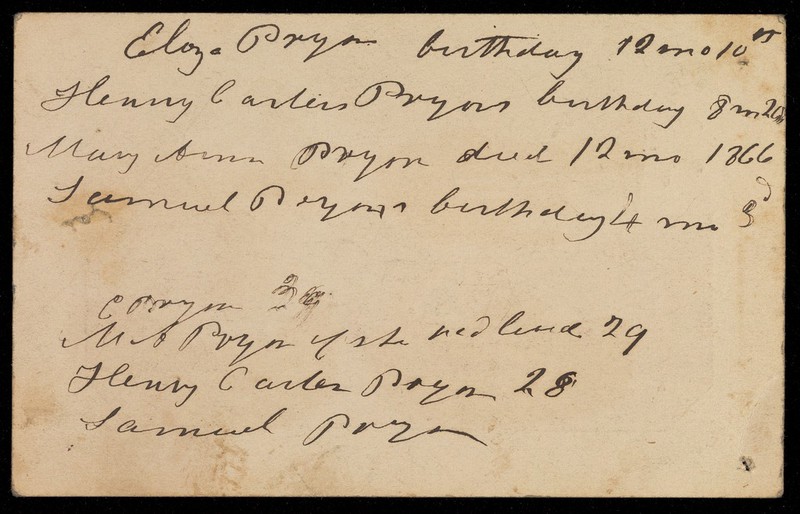 Eliza Pryor birthday 12 mo 10th
Henry Carters Pryors birthday 8 m 20
Mary Ann Pryor died 12 mo 1866
Samuel Pryors birthday 4 mo 3d
E Pryor
M A Pryor if she had lived 29
Henry Carter Pryor 28
Samuel Pryor